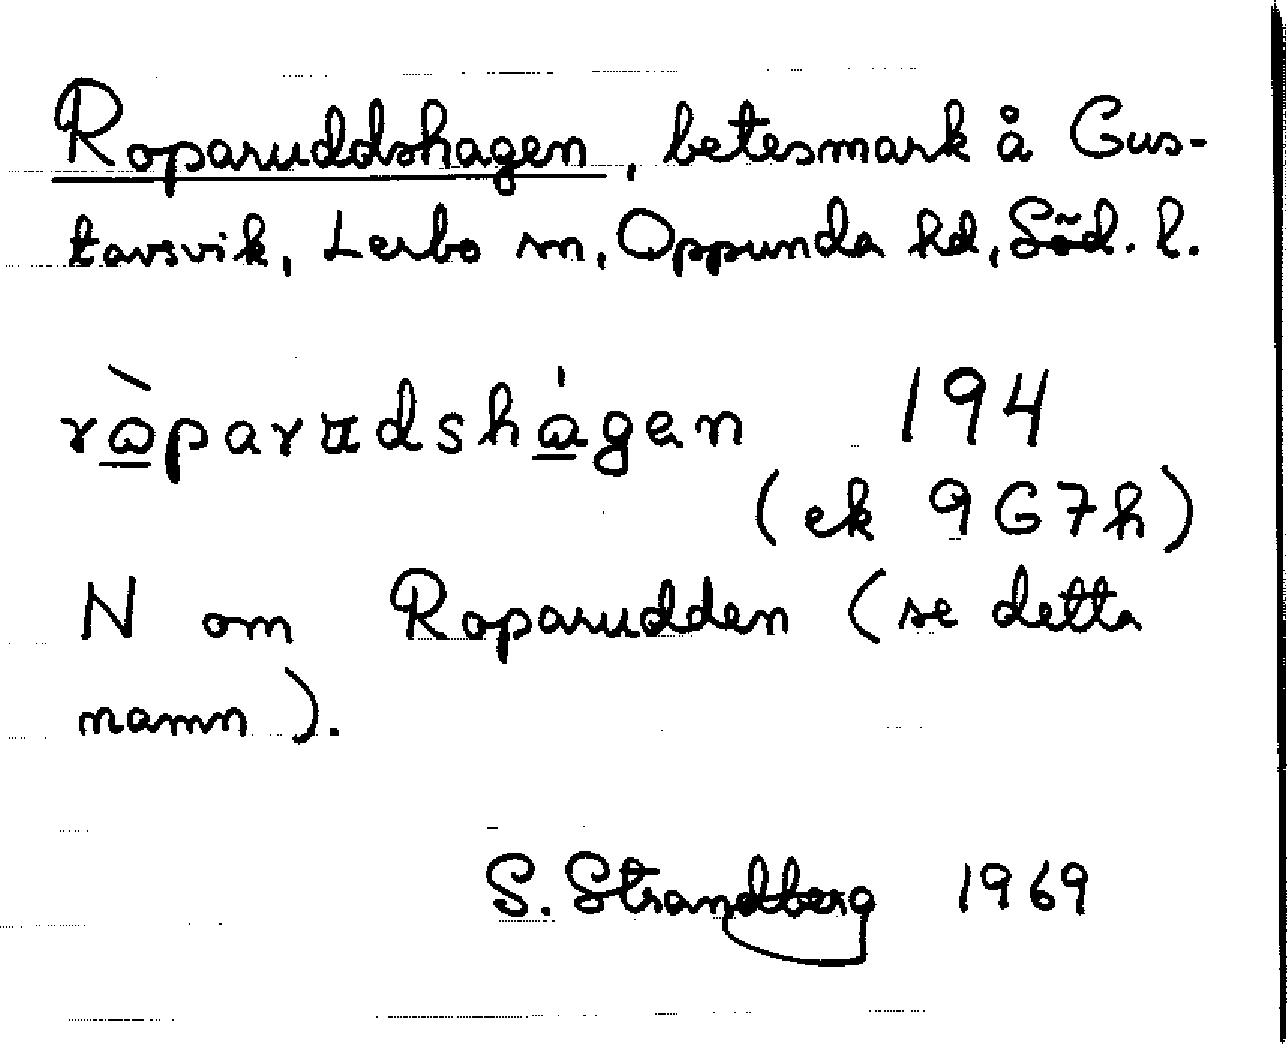 Roparuddshagen, betesmark å Gus-
tavsvik, Lerbo sn, Oppunda hd, Söd. l.
rɷ̲̀parʉdshɑ̲̍gen 194
(ek 9G7h)
N om Roparudden (se detta
namn).
S. Strandberg 1969